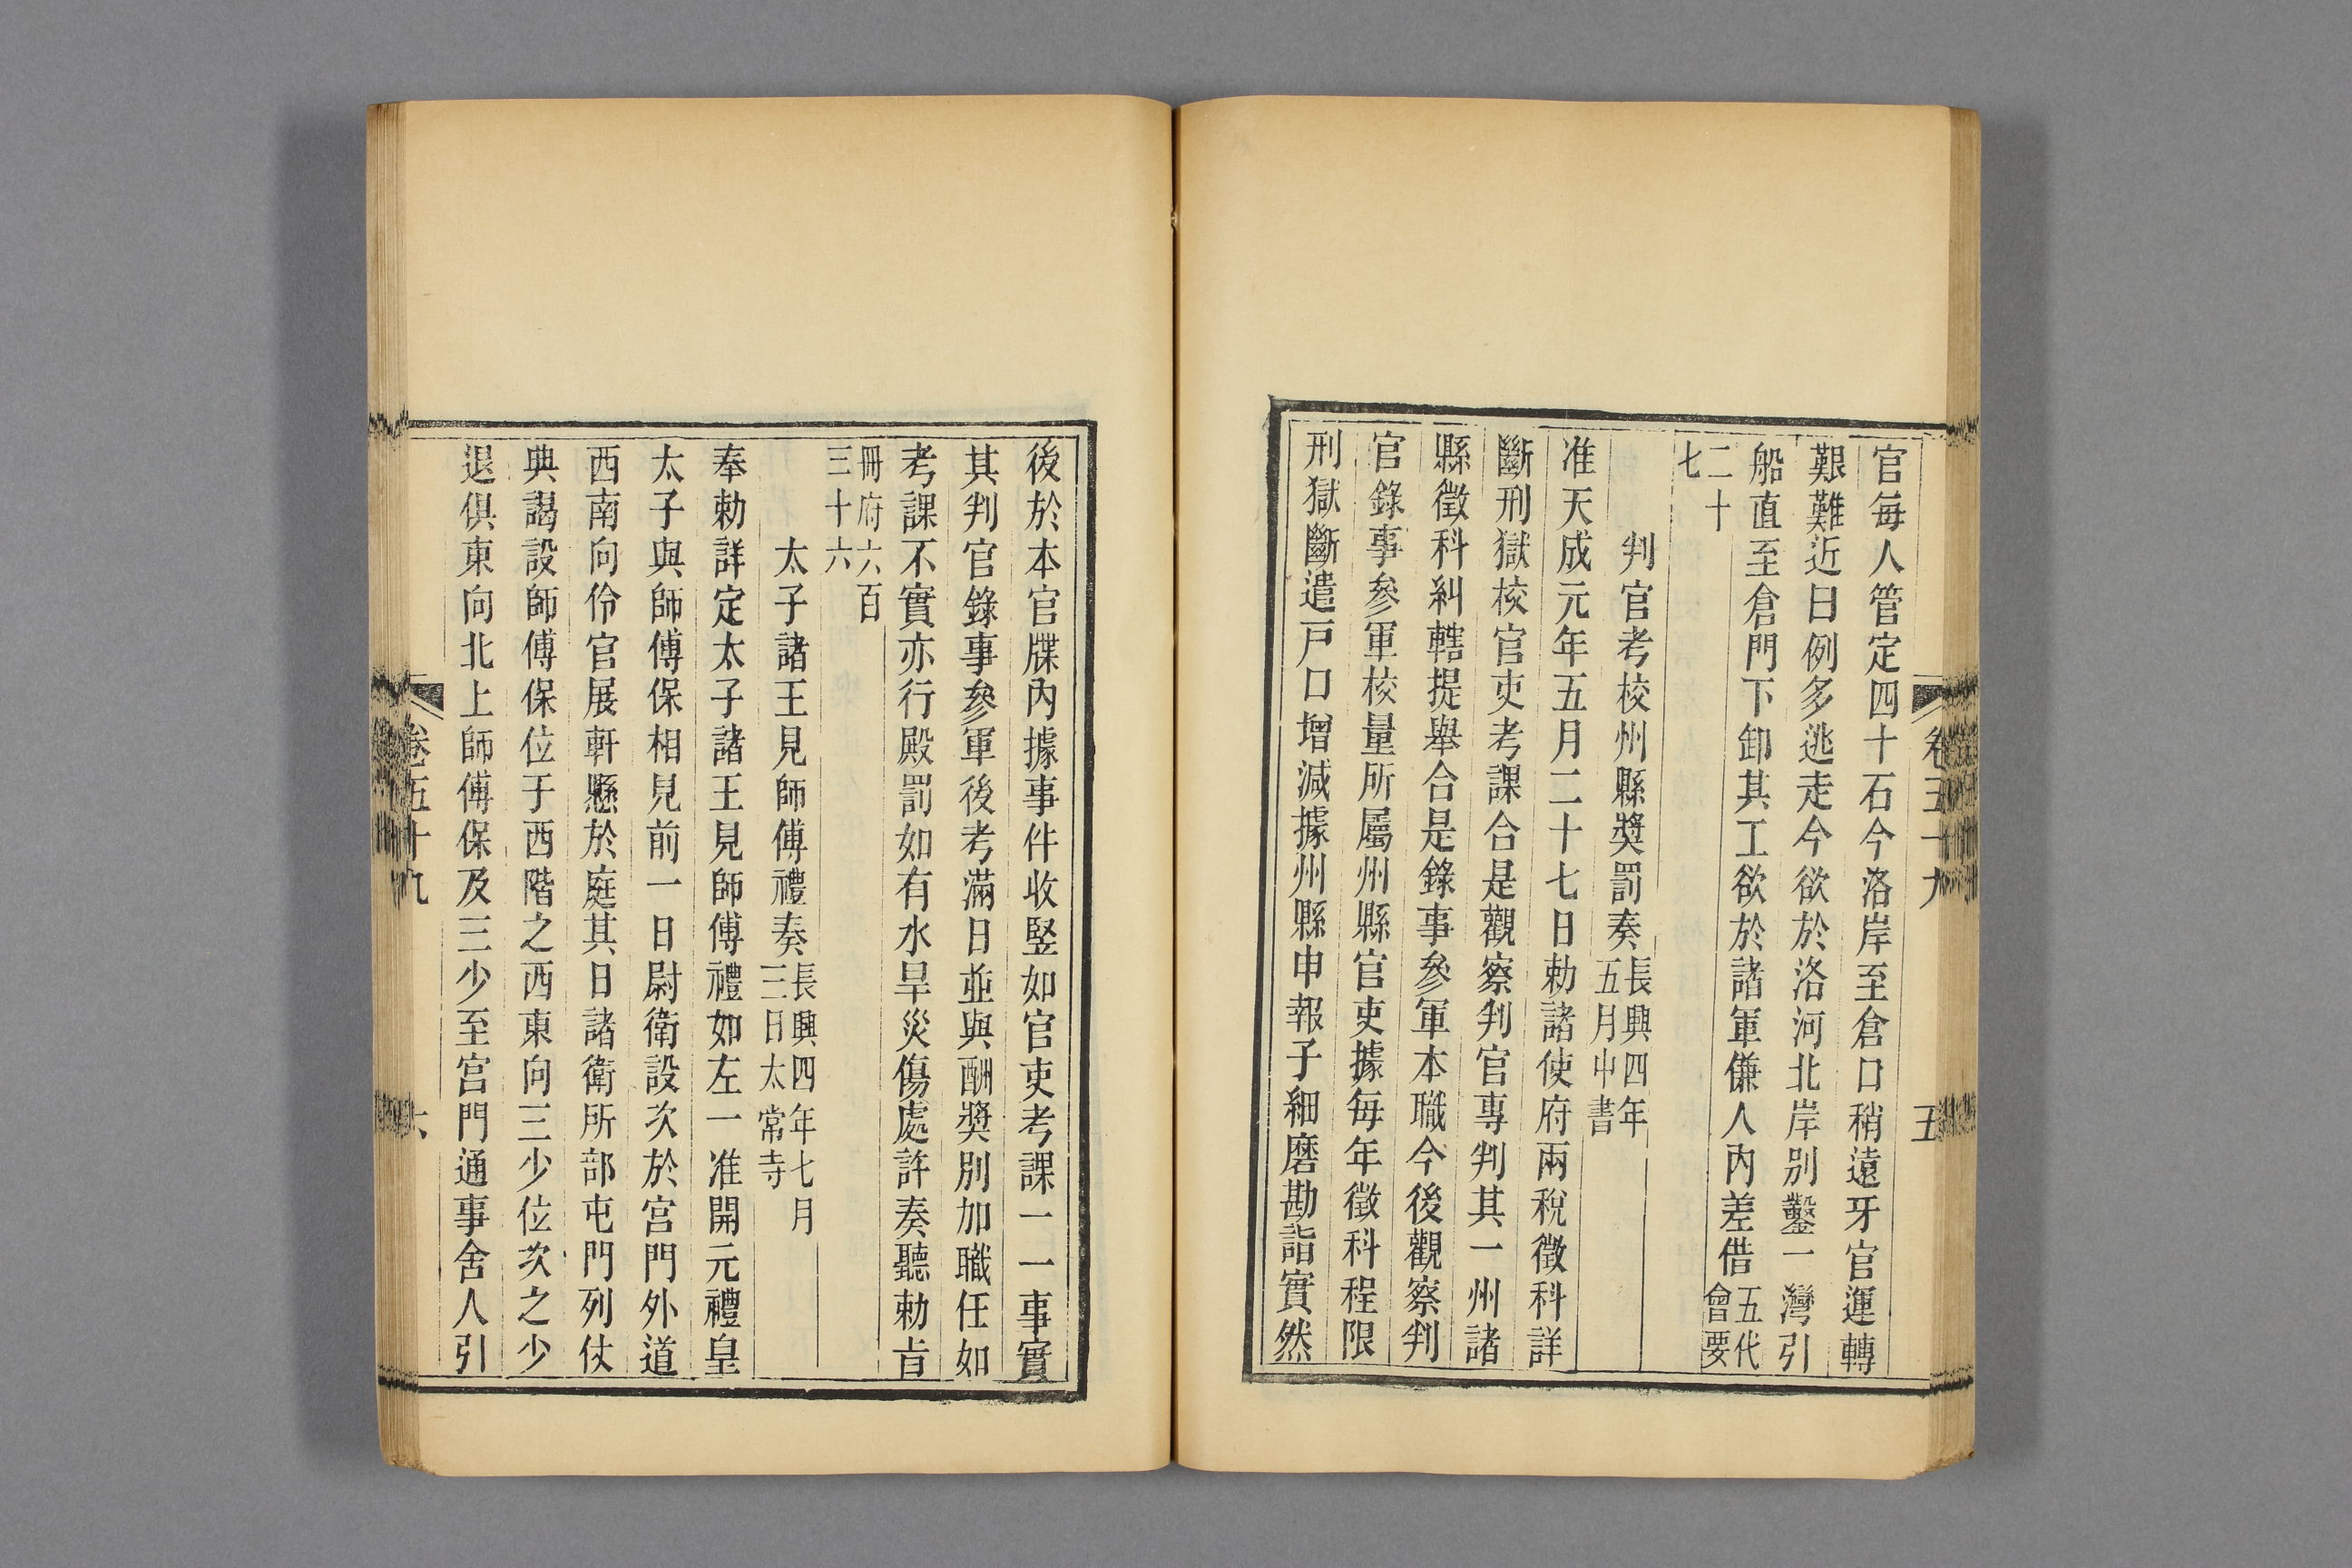 官每人管定四十石今洛岸至倉口稍遠牙官運轉
艱難近日例多逃走今欲於洛河北岸別鑿一灣引
船直至倉門下卸其工欲於諸軍傔人內差借五代會要
二十七
判官考校州縣獎罰奏長興四年五月中書
准天成元年五月二十七日勅諸使府兩稅徵科詳
斷刑獄校官吏考課合是觀察判官專判其一州諸
縣徵科糾轄提舉合是錄事參軍本職今後觀察判
官錄事參軍校量所屬州縣官吏據每年徵科程限
刑獄斷遣戸口增減據州縣申報子細磨勘詣實然
卷五十九
五
後於本官牒內據事件收竪如官吏考課一一事實
其判官錄事參軍後考滿日並與酬獎別加職任如
考課不實亦行殿罰如有水旱災傷處許奏聽勅旨
冊府六百三十六
太子諸王見師傅禮奏長興四年七月三日太常寺
奉勅詳定太子諸王見師傅禮如左一准開元禮皇
太子與師傅保相見前一日尉衛設次於宮門外道
西南向伶官展軒懸於庭其日諸衛所部屯門列仗
典謁設師傅保位于西階之西東向三少位次之少
退俱東向北上師傅保及三少至宮門通事舍人引
卷五十九
六